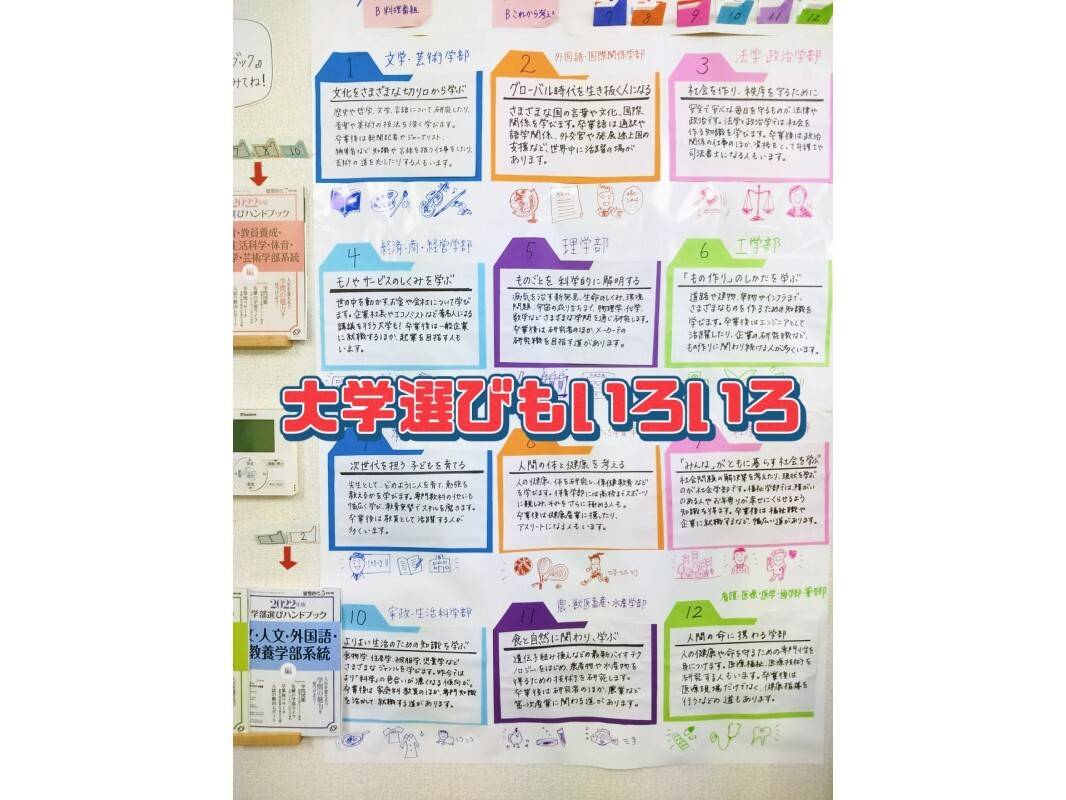 B 料理番組
B これから考える
7 8 9 10 11 12
みてね!
1 文学・芸術学部
文化をさまざまな切り口から学ぶ
歴史や哲学、文学、言語について研究したり、
音楽や美術の技法を深く学びます。
卒業後は新聞記者やジャーナリスト、
編集者など知識や言語を扱う仕事をしたり、
芸術の道を志したりする人もいます。
2 外国語・国際関係学部
グローバル時代を生き抜く人になる
さまざまな国の言葉や文化、国際
関係を学びます。卒業語は通訳や
語学関係、外交官や発展途上国の
支援など、世界中に活躍の場が
あります。
3 法学・政治学部
社会を作り、秩序を守るために
安全で安心な毎日を守るものが法律や
政治です。法学と政治学では社会を
作る知識を学びます。卒業後は政治
関係の仕事のほか、資格をとって弁護士や
司法書士になる人もいます。
7 8 10
2022年版
選びハンドブック
・教員養成・
生活科学・体育・
・芸術学部系統
編
4 経済・商・経営学部
モノやサービスのしくみを学ぶ
世の中を動かす、お金や会社について学び
ます。企業社長やエコノミストなど著名人による
講義を行う大学も!卒業後は一般企業
に就職するほか、起業を目指す人も
います。
5 理学部
ものごとを科学的に解明する
病気を治す新発見、生命のしくみ、環境
問題、宇宙の成り立ちまで、物理学、化学、
数学などさまざまな学問を通じ研究します。
卒業後は研究者のほか、メーカーでの
研究職を目指す道があります。
6 工学部
「もの作り」のしかたを学ぶ
道路や建物、薬物やインフラまで、
さまざまなものを作るための知識を
学びます。卒業後はエンジニアとして
活躍したり、企業の研究職など、
もの作りに関わり続ける人が多くいます。
大学選びもいろいろ
次世代を担う子どもを育てる
先生として、どのように人を育て、勉強を
教えるかを学びます。専門教科の他にも
幅広く学び、教育実習でスキルを磨きます。
卒業後は教員として活躍する人が
多くいます。
人間の体と健康を考える
人の健康、体を研究し、保健体育教育など
を学びます。体育学部には高校までスポーツ
に親しみ、それをさらに極める人も。
卒業後は健康産業に携ったり、
アスリートになる人もいます。
「みんな」がともに暮らす社会を学ぶ
社会問題の解決策を考えたり、現状を学ぶ
のが社会学部です。福祉学部では、障がい
のある人やお年寄りが幸せにくらせるよう
知識を得ます。卒業後は福祉職や
企業に就職するなど、幅広い道があります。
1 2
2022年版
学部選びハンドブック
・人文・外国語・
教養学部系統
編
10 家政・生活科学部
よりよい生活のための知識を学ぶ
食物学、住居学、被服学、児童学など
さまざまなジャンルを学びます。昨今では
より「科学」の色合いが濃くなる傾向が。
卒業後は家庭科教員のほか、専門知識
を活かして就職する道があります。
11 農・獣医畜産・水産学部
食と自然に関わり、学ぶ
遺伝子組み換えなどの最新バイオテク
ノロジーをはじめ、農産物や水産物を
得るための技術を研究します。
卒業後は研究者のほか、農業など
第一次産業に関わる道があります。
看護・医療・医学・歯学部・薬学部
12
人間の命に携わる学部
人の健康や命を守るための専門化学を
身につけます。医療福祉、医療技術を
研究する人もいます。卒業後は
医療現場だけでなく、健康指導を
行うなどの道もあります。